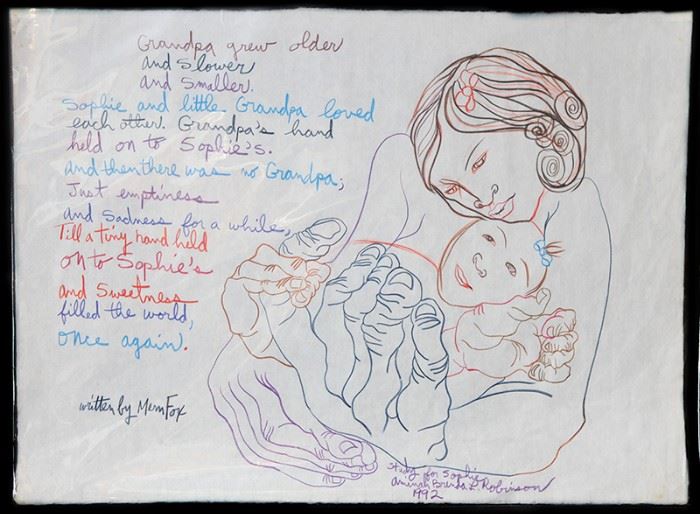 Grandpa grew older
and slower
and smaller.
Sophie and little Grandpa loved
each other. Grandpa's hand
held on to Sophie's.
and then there was no Grandpa;
Just emptiness
and sadness for a while,
Till a tiny hand held
on to Sophie's
and sweetness
filled the world,
once again.
written by Mem Fox
Study for Sophie
Aminah Brenda L Robinson
1992